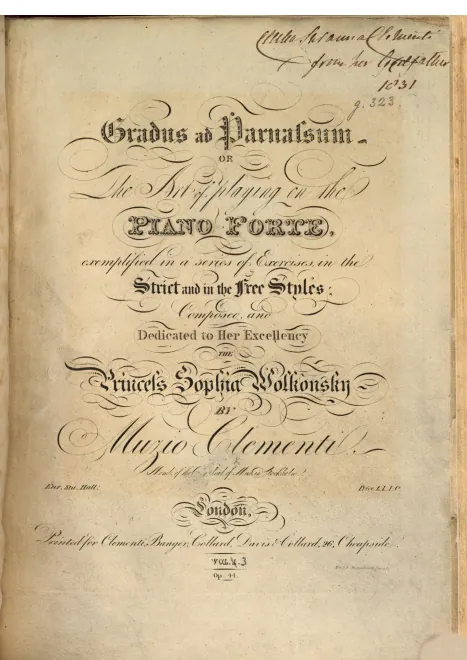 Susanna Clementi
from her Godfather
1831
g. 323
Gradus ad Parnaſsum
OR
The Art of playing on the
PIANO FORTE,
exemplified in a series of Exercises, in the
Strict and in the Free Styles;
Composed, and
Dedicated to Her Excellency
THE
Princeſs Sophia Wolkonsky
BY
Muzio Clementi.
Ent. Sta. Hall.
Price £1.1.0
London,
Printed for Clementi, Banger, Collard, Davis & Collard, 26, Cheapside.
VOL. 3
Op. 44.